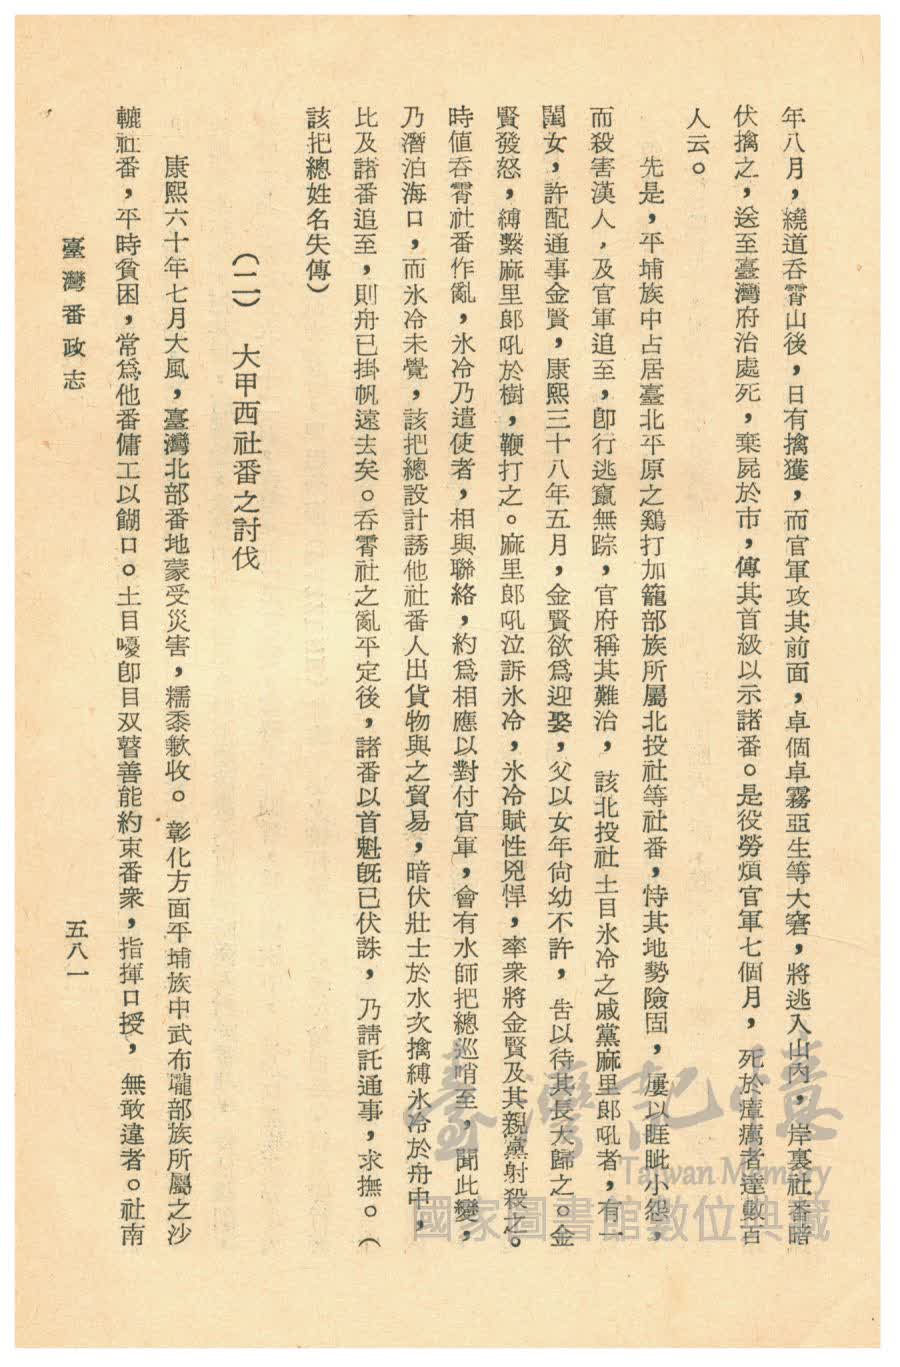 年八月，繞道吞霄山後，日有擒獲，而官軍攻其前面，卓個卓霧亞生等大窘，將逃入山內，岸裏社番暗
伏擒之，送至臺灣府治處死，棄屍於市，傳其首級以示諸番。是役勞煩官軍七個月，死於瘴癘者達數百
人云。
先是，平埔族中占居臺北平原之鷄打加籠部族所屬北投社等社番，恃其地勢險固，屢以睚眦小怨，
而殺害漢人，及官軍追至，卽行逃竄無踪，官府稱其難治，該北投社土目氷冷之戚黨麻里郎吼者，有一
閨女，許配通事金賢，康熙三十八年五月，金賢欲爲迎娶，父以女年尙幼不許，告以待其長大歸之。金
賢發怒，縛繫麻里郎吼於樹，鞭打之。麻里郎吼泣訴氷冷，氷冷賦性兇悍，率衆將金賢及其親黨射殺之。
時値吞霄社番作亂，氷冷乃遣使者，相與聯絡，約爲相應以對付官軍，會有水師把總巡哨至，聞此變，
乃潛泊海口，而氷冷未覺，該把總設計誘他社番人出貨物與之貿易，暗伏壯士於水次擒縛氷冷於舟中，
比及諸番追至，則舟已掛帆遠去矣。吞霄社之亂平定後，諸番以首魁旣已伏誅，乃請託通事，求撫。（
該把總姓名失傳）
（二）　大甲西社番之討伐
康熙六十年七月大風，臺灣北部番地蒙受災害，糯黍歉收。彰化方面平埔族中武布瓏部族所屬之沙
轆社番，平時貧困，常爲他番傭工以餬口。土目嘎卽目双瞽善能約束番衆，指揮口授，無敢違者。社南
臺灣番政志
五八一
臺灣記憶
Taiwan Memory
國家圖書館數位典藏